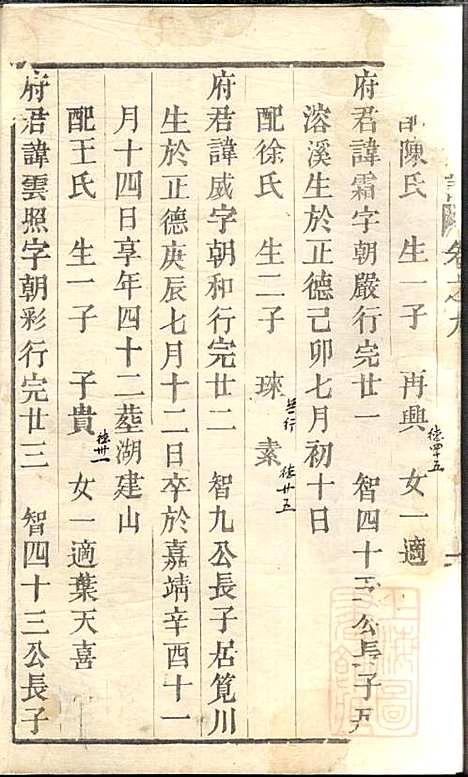 譜 卷之九
配陳氏 生一子 再興 德四五 女一適
府君諱霜字朝嚴行完廿一 智四十五公長子
溶溪生於正德己卯七月初十日
配徐氏 生二子 琜 無行 素 德廿五
府君諱威字朝和行完廿二 智九公長子居筧川
生於正德庚辰七月十二日卒於嘉靖辛酉十一
月十四日享年四十二塟湖建山
配王氏 生一子 子貴 德卅一 女一適葉天喜
府君諱雲照字朝彩行完廿三 智四十三公長子